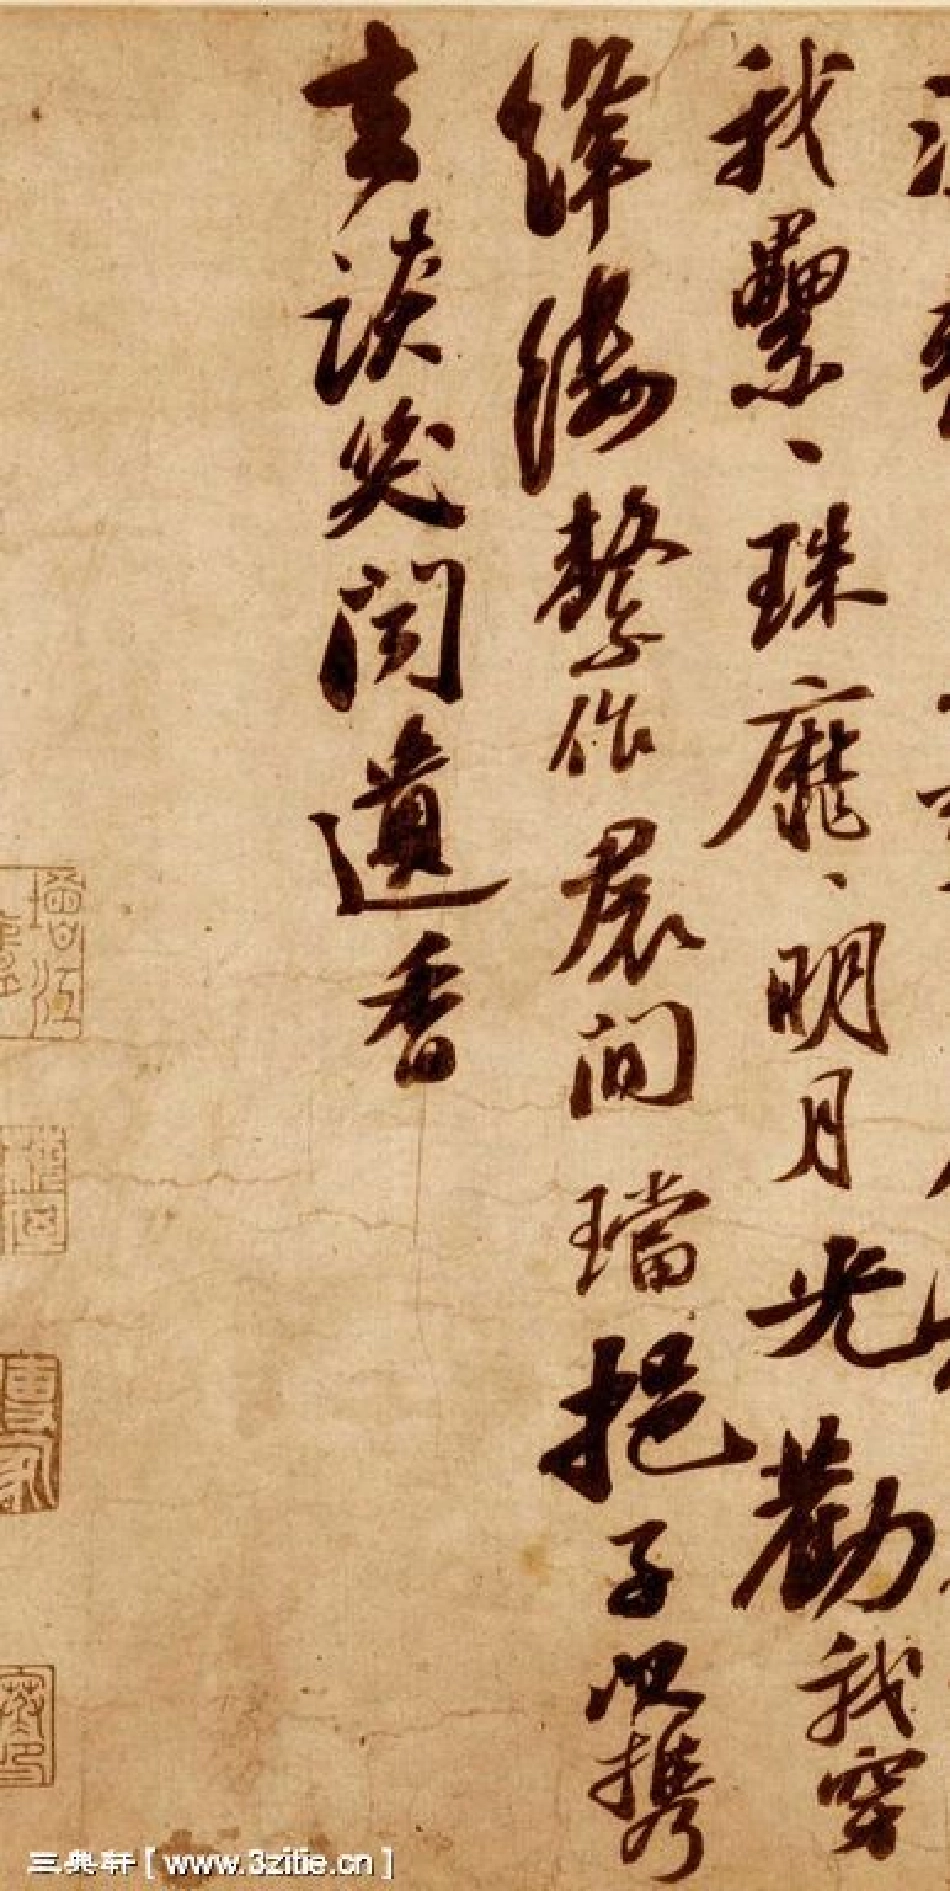 我纍、珠靡、明月光勸我穿
絳縷繫作裠間璫挹子以攜
去談笑聞遺香
三典轩[ www.3zitie.cn ]